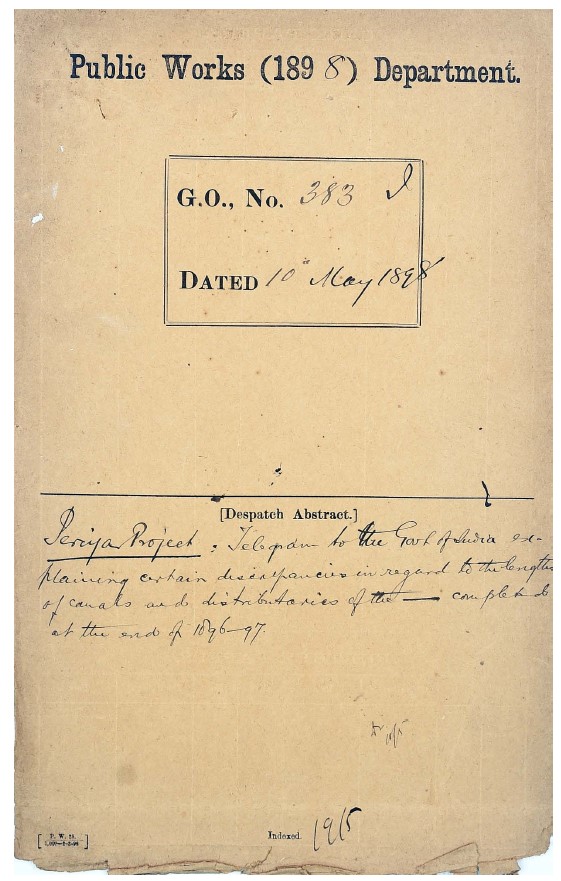 Public Works (1898) Department.
G.O., No. 383 I
DATED 10th May 1898
[Despatch Abstract.]
Periyar Project : Telegram to the Govt of India ex-
plaining certain discrepancies in regard to the lengths
of canals and distributaries of the — completed
at the end of 1896-97.
Indexed. 19/5